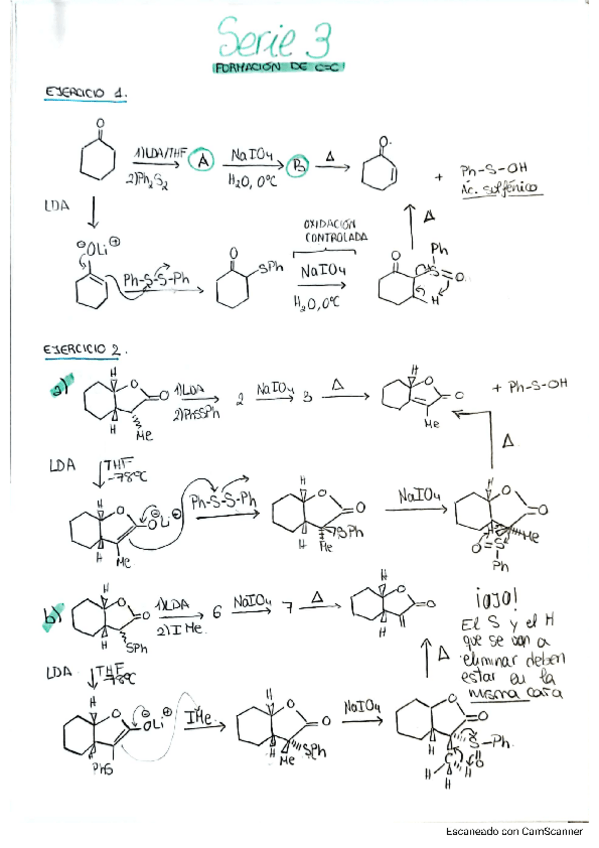 Serie 3
FORMACIÓN DE C=C
EJERCICIO 1.
1)LDA/THF
2)Ph₂S₂
A
NaIO₄
H₂O, 0ºC
B
Δ
+ Ph-S-OH
Ác. sulfénico
LDA
OLi
Ph-S-S-Ph
SPh
OXIDACIÓN
CONTROLADA
NaIO₄
H₂O, 0ºC
Δ
EJERCICIO 2.
a)
1)LDA
2)PhSSPh
2
NaIO₄
3
Δ
+ Ph-S-OH
LDA
THF
-78ºC
Ph-S-S-Ph
NaIO₄
Δ
b)
1)LDA
2)IMe.
6
NaIO₄
7
Δ
¡OJO!
El S y el H
que se van a
eliminar deben
estar en la
misma cara
LDA
THF
-78ºC
IMe.
NaIO₄
Δ
Escaneado con CamScanner